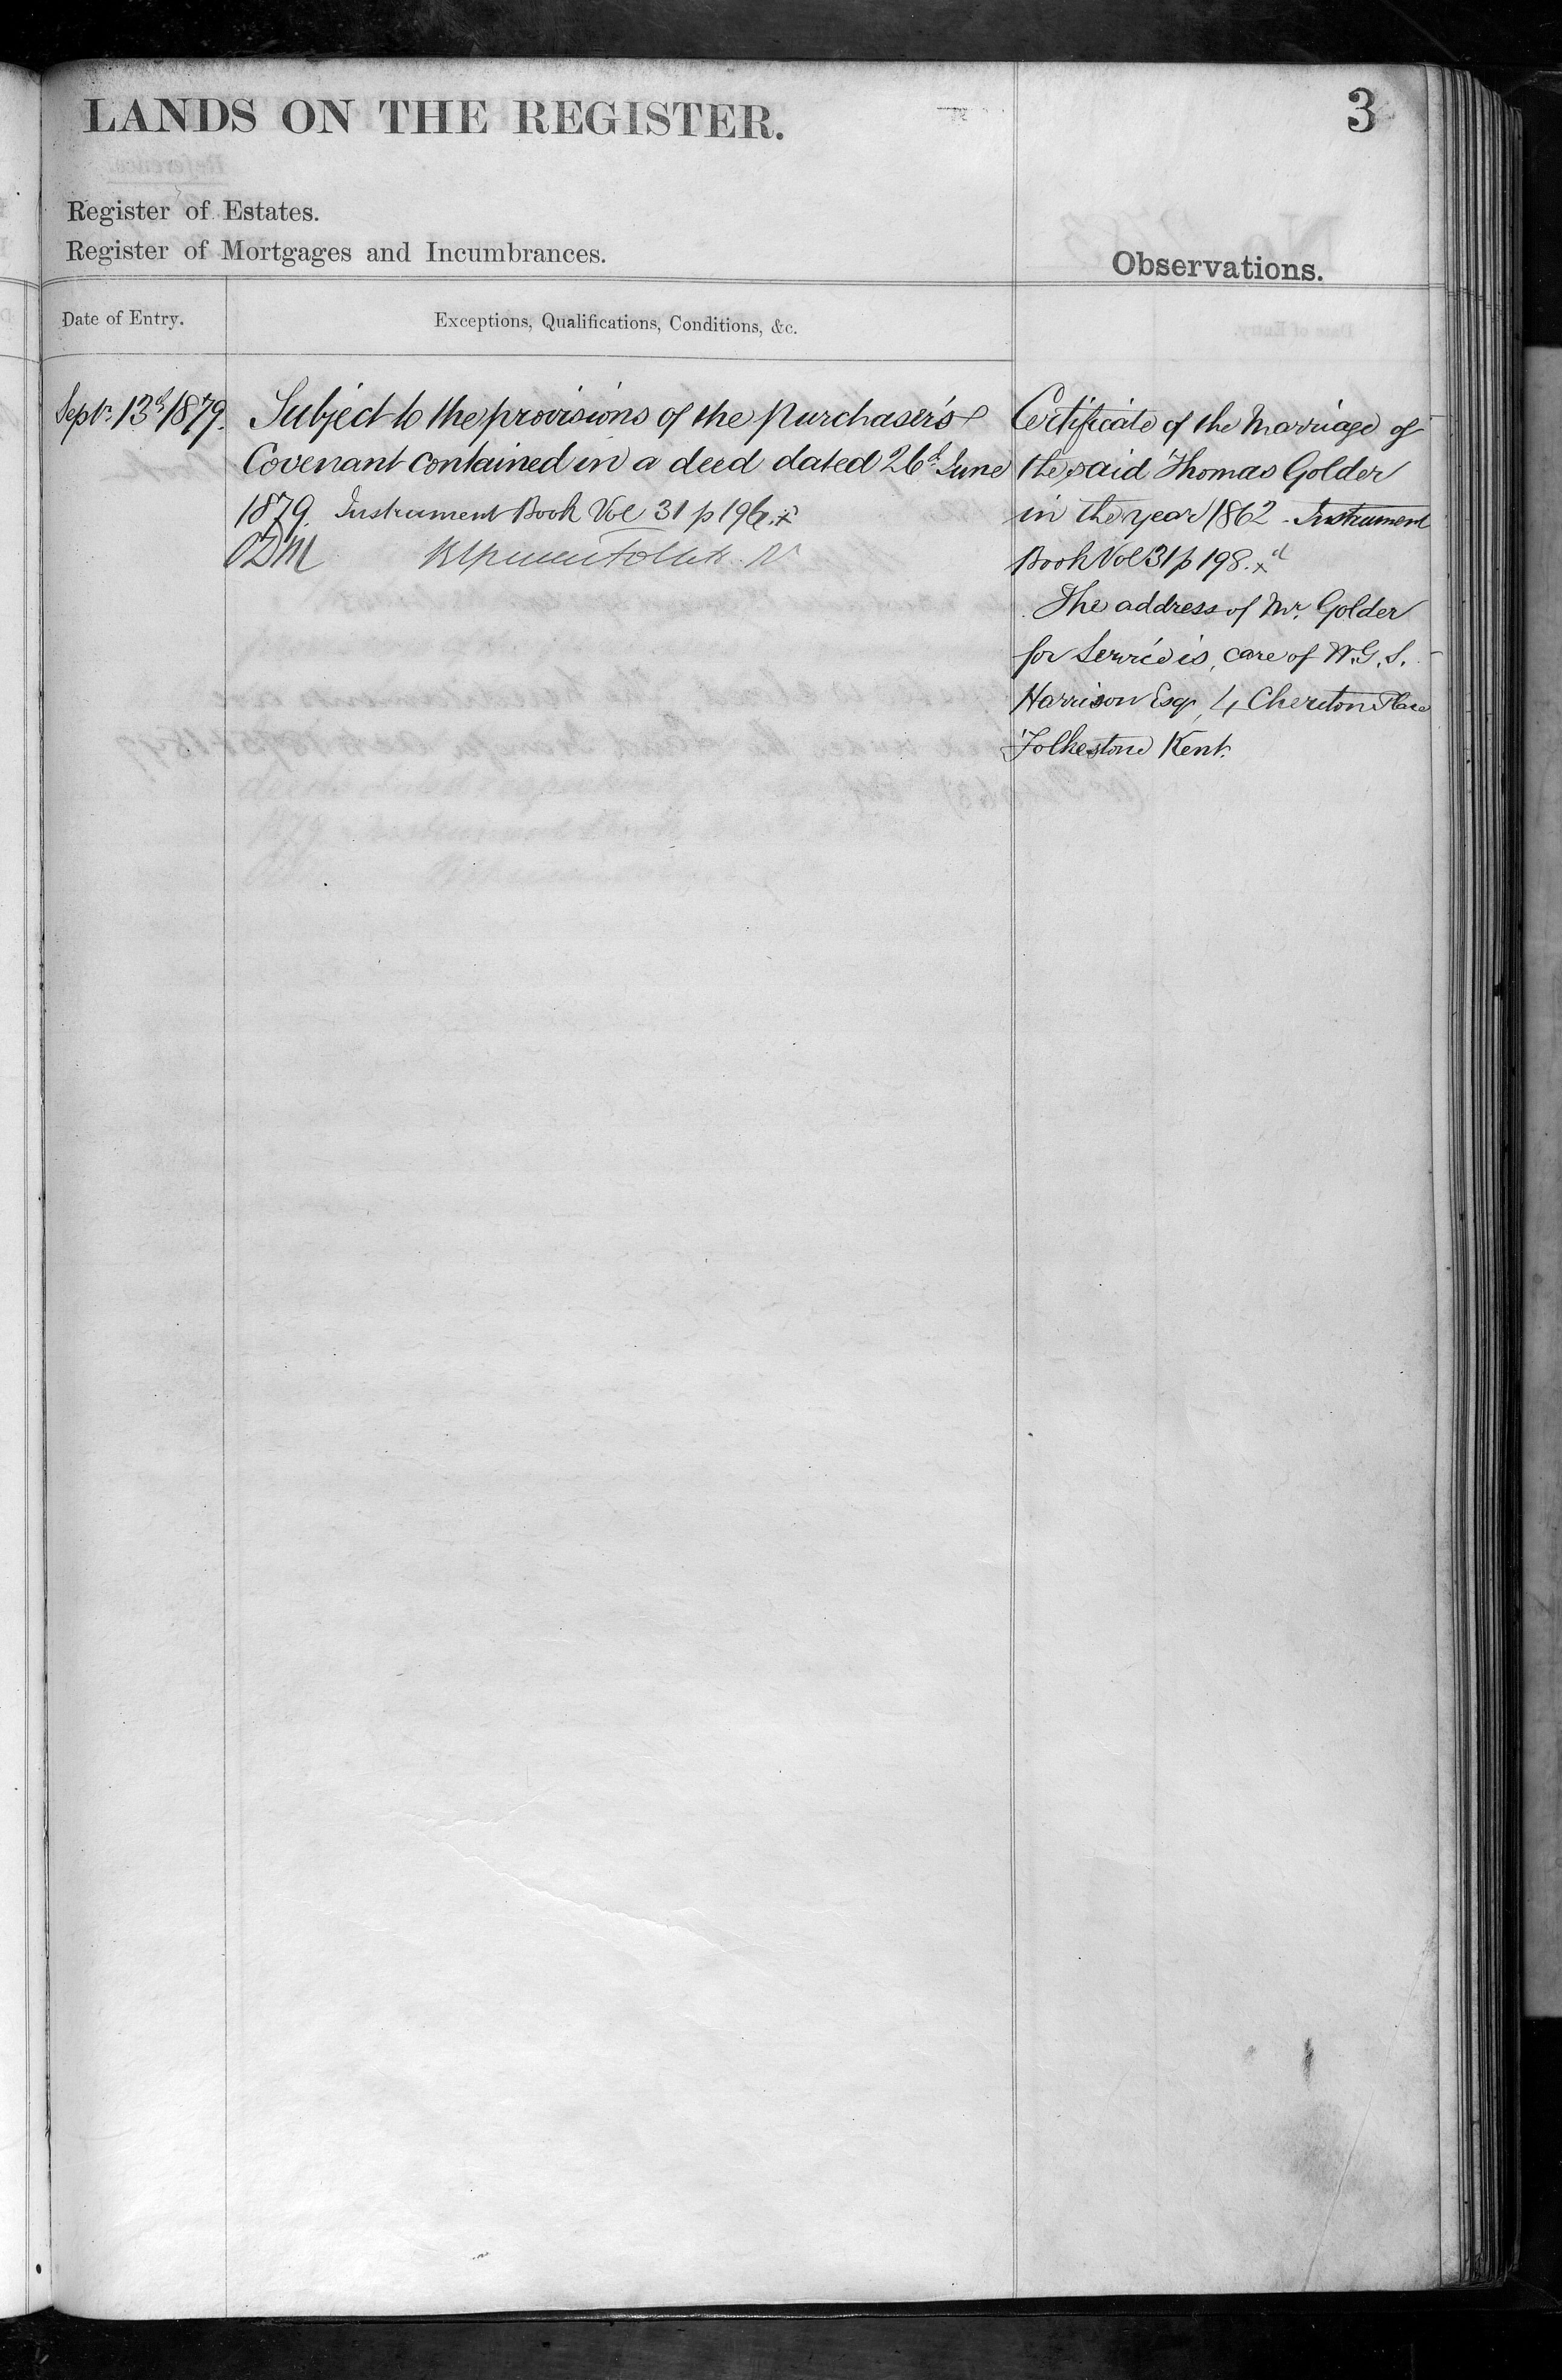 LANDS ON THE REGISTER.
3
Register of Estates.
Register of Mortgages and Incumbrances.
Observations.
Date of Entry.
Exceptions, Qualifications, Conditions, &c.
Septr. 13th 1879.
Subject to the provisions of the purchaser's
Covenant contained in a deed dated 26th June
1879. Instrument Book Vol 31 p 196.
Certificate of the Marriage of
the said Thomas Golder
in the year 1862. Instrument
Book Vol 31 p 198.
The address of Mr. Golder
for Service is, care of W. G. S.
Harrison Esqr, 4 Cheriton Place
Folkestone Kent.